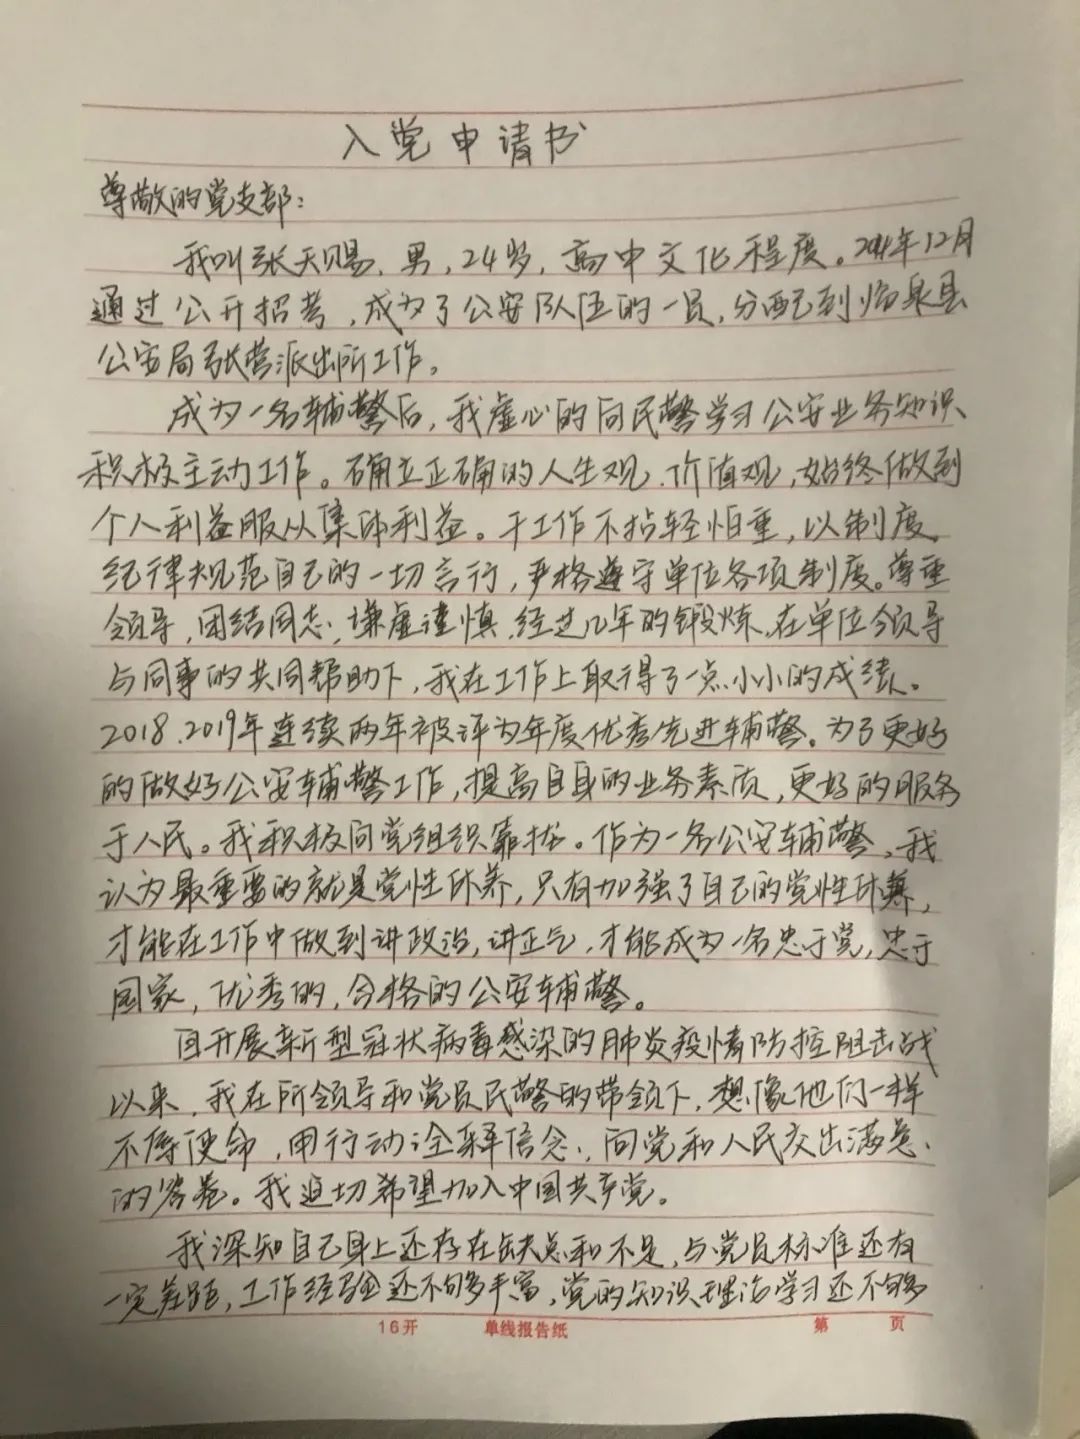 入党申请书
尊敬的党支部：
我叫张天赐，男，24岁，高中文化程度。2014年12月
通过公开招考，成为了公安队伍的一员，分配到临泉县
公安局张营派出所工作。
成为一名辅警后，我虚心的向民警学习公安业务知识
积极主动工作。确立正确的人生观、价值观，始终做到
个人利益服从集体利益。干工作不拈轻怕重，以制度、
纪律规范自己的一切言行，严格遵守单位各项制度。尊重
领导，团结同志，谦虚谨慎，经过几年的锻炼，在单位领导
与同事的共同帮助下，我在工作上取得了一点小小的成绩。
2018、2019年连续两年被评为年度优秀先进辅警。为了更好
的做好公安辅警工作，提高自身的业务素质，更好的服务
于人民。我积极向党组织靠拢。作为一名公安辅警，我
认为最重要的就是党性休养，只有加强了自己的党性休养，
才能在工作中做到讲政治，讲正气，才能成为一名忠于党，忠于
国家，优秀的，合格的公安辅警。
自开展新型冠状病毒感染的肺炎疫情防控阻击战
以来，我在所领导和党员民警的带领下，想像他们一样
不辱使命，用行动诠释信念，向党和人民交出满意
的答卷。我迫切希望加入中国共产党。
我深知自己身上还存在缺点和不足，与党员标准还有
一定差距，工作经验还不够丰富，党的知识理论学习还不够多
16开 单线报告纸 第 页